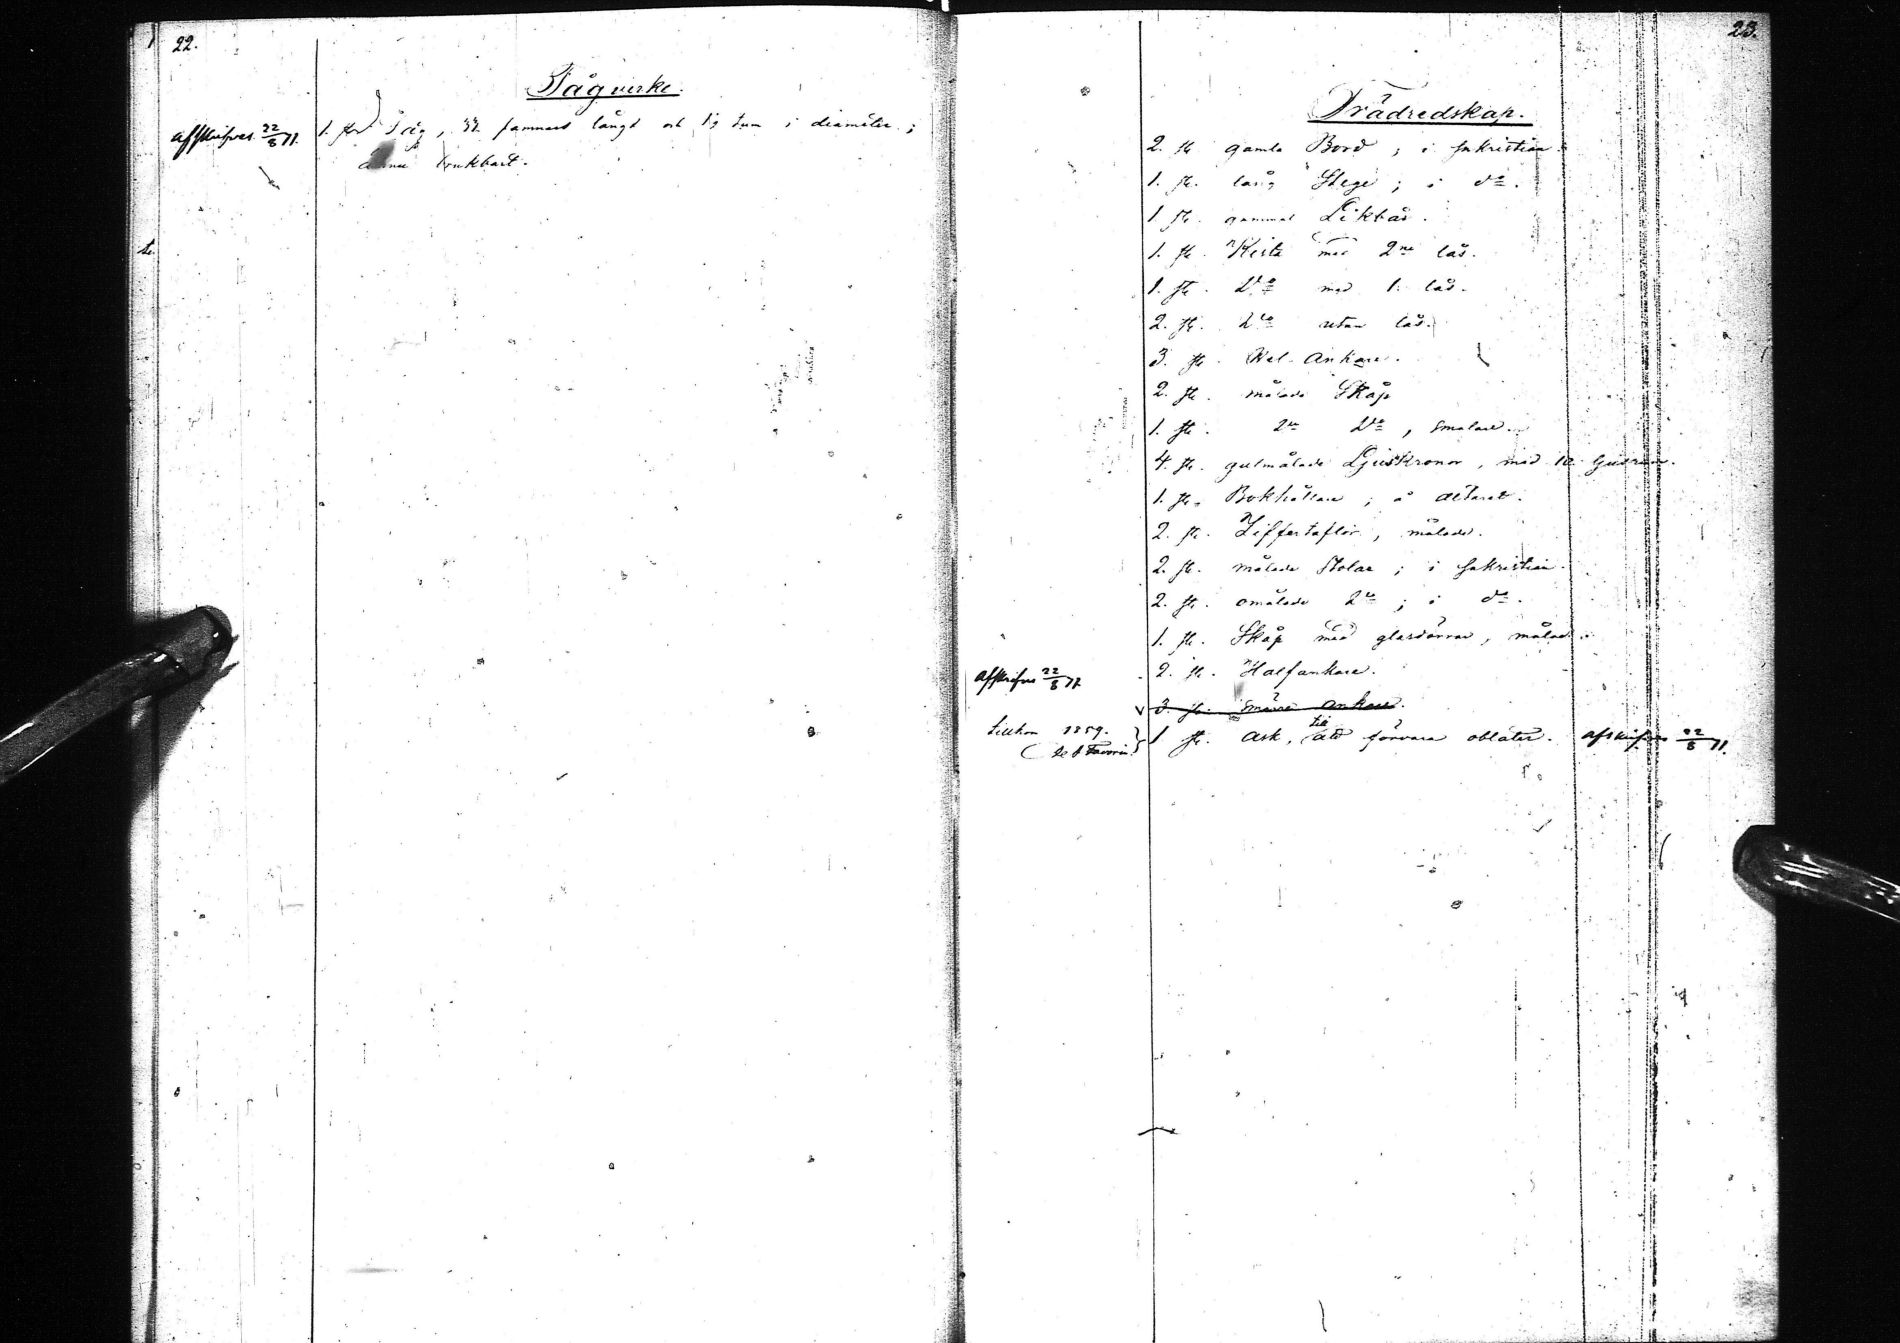 22.
Tågverke.
Affskrifves 22/8 71.
1. st. Tåg, 32 famnars långt och 1½ tum i diameter;
ännu brukbart.
23.
Trädredskap.
2. st. gamla Bord; i sakristian.
1. st. lång Stege; i do.
1 st. gammal Likbår.
1. st. Kista med 2ne lås.
1. st. Do med 1. lås.
2. st. Do utan lås.
3. st. Hel-Ankare.
2. st. målade Skåp
1. st. Do Do, smalare.
4. st. gulmålade Ljuskronor, med 12 ljusrum.
1. st. Bokhållare; å altaret.
2. st. Ziffertaflor, målade.
2. st. målade Stolar; i sakristian.
2. st. omålade Do; i do.
1. st. Skåp med glasdörrar, målad.
Affskrifves 22/8 71
2. st. Halfankare.
3. st. smärre ankare.
tillkom 1859.
1 st. ask, till att förvara oblater. Afskrifves 22/8 71.